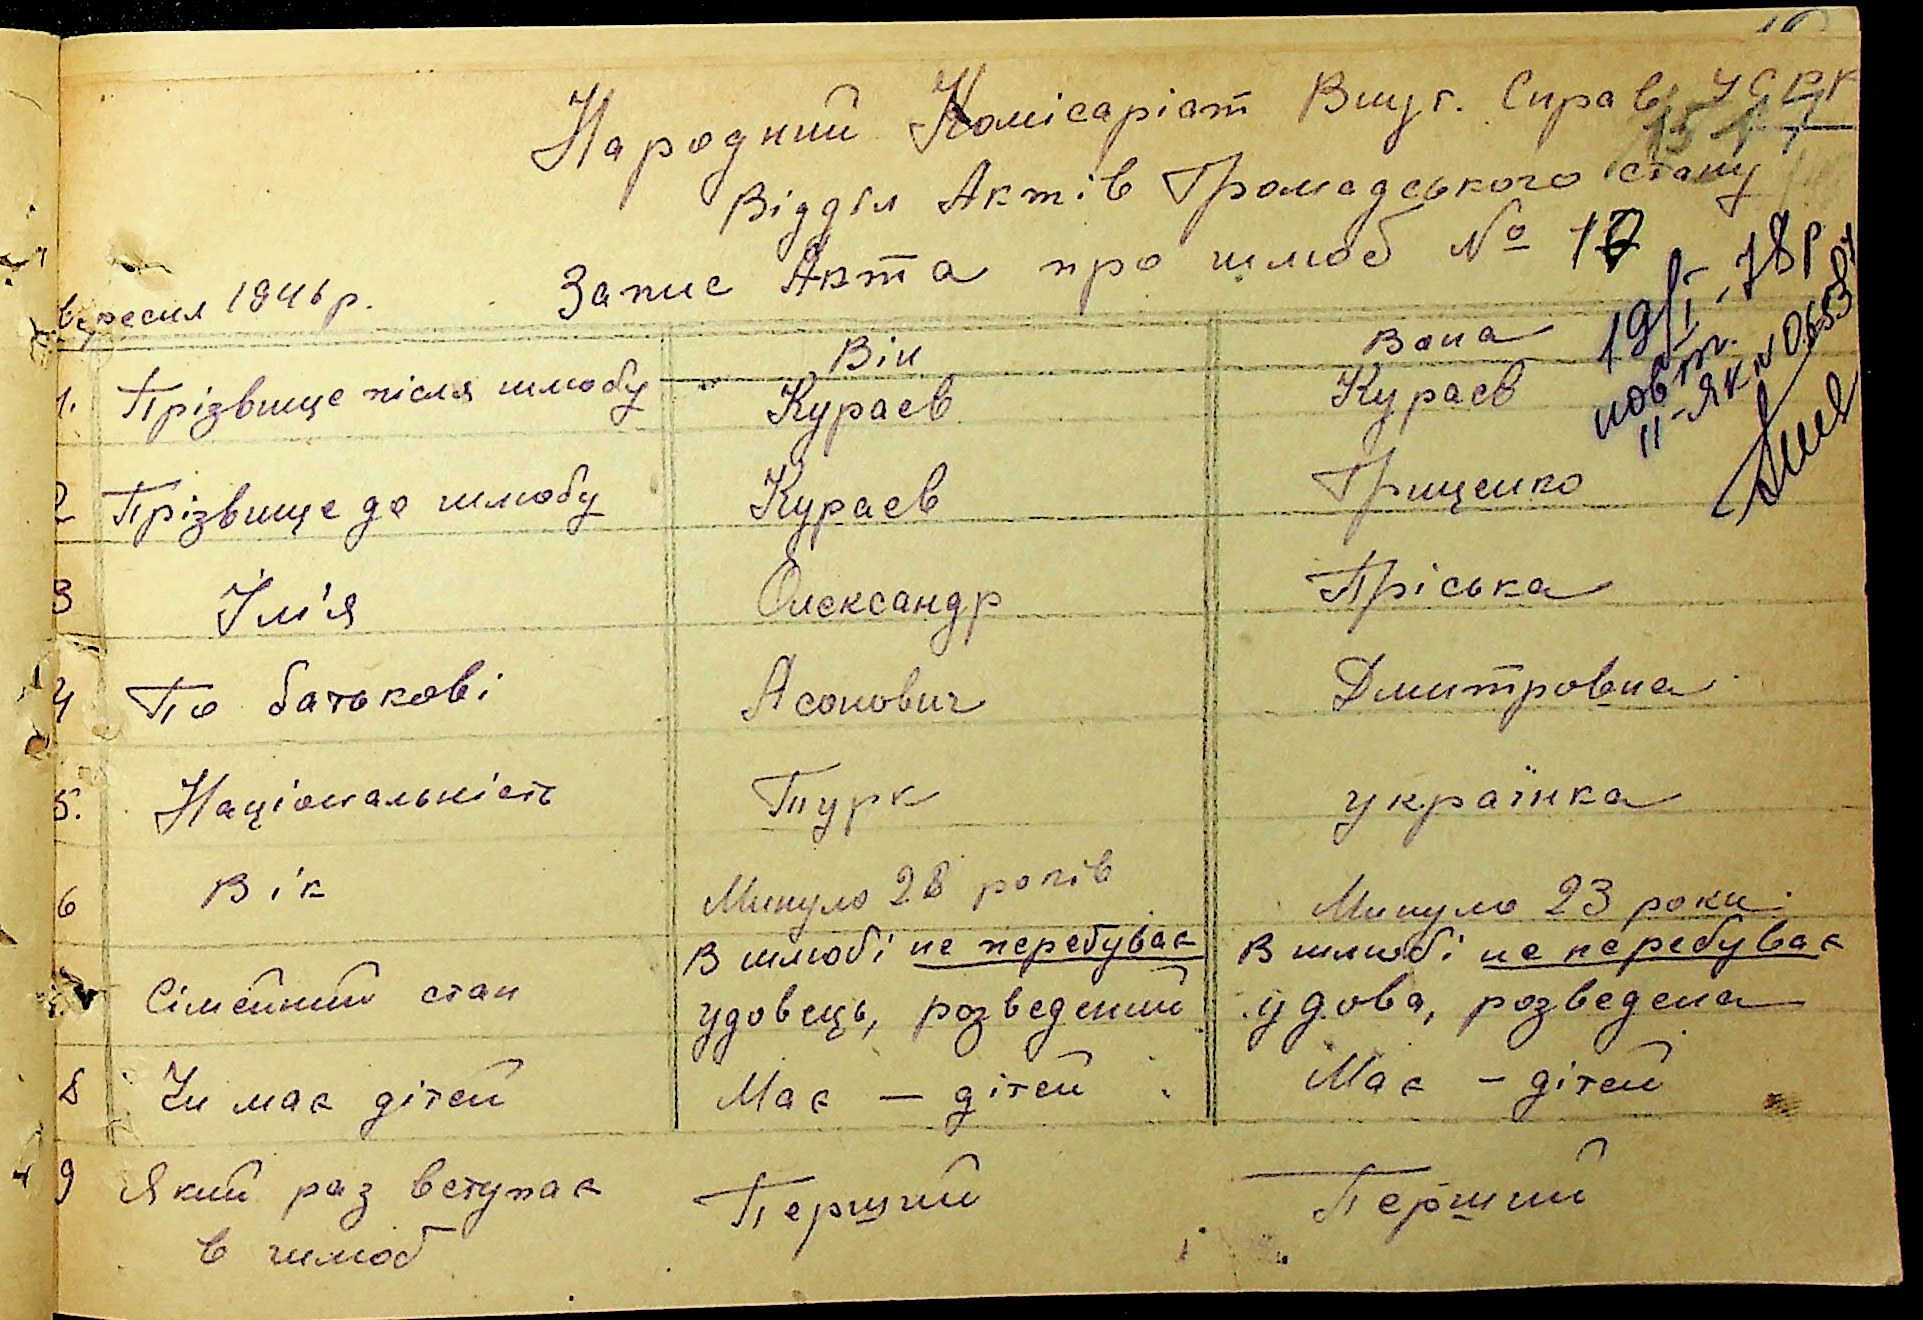 Народний Комісаріат Внут. Справ УСРР
Відділ Актів Громадського стану
Запис Акта про шлюб № 17
вересня 1946 р.
Він Вона
1. Прізвище після шлюбу Кураев Кураев
2 Прізвище до шлюбу Кураев Грищенко
3 Ім'я Олександр Пріська
4 По батькові Асонович Дмитровна
5. Національність Турк українка
6 Вік Минуло 28 років Минуло 23 роки
Сімейний стан В шлюбі не перебуває В шлюбі не перебуває
удовець, розведений удова, розведена
8 Чи має дітей Має — дітей Має — дітей
9 Який раз вступає Перший Перший
в шлюб
19/I-78 р
повт.
II-ЯК №